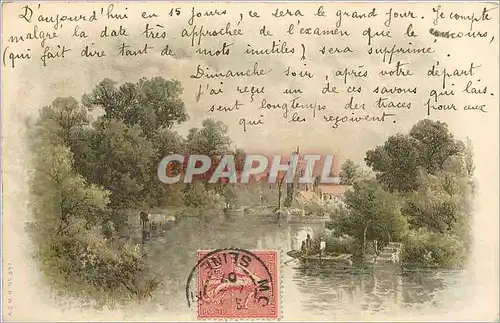 D'aujourd'hui en 15 jours, ce sera le grand jour. Je compte
malgré la date très approchée de l'examen que le concours,
(qui fait dire tant de mots inutiles) sera supprimé.
Dimanche soir, après votre départ
j'ai reçu un de ces savons qui lais-
sent longtemps des traces pour ceux
qui les reçoivent.
CPAPHIL
SEINE
07